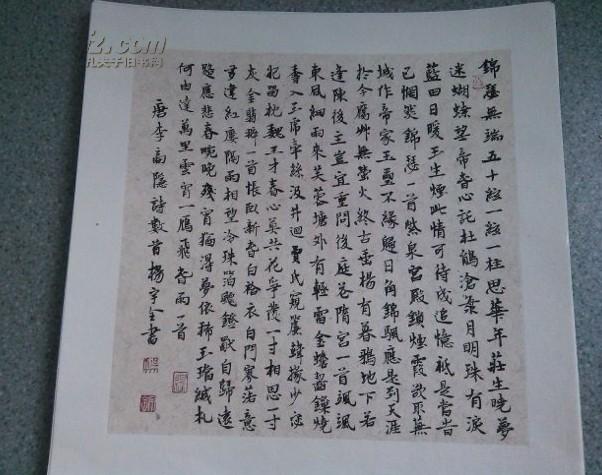 錦瑟無端五十絃一絃一柱思華年莊生曉夢
迷蝴蝶望帝春心託杜鵑滄海月明珠有淚
藍田日暖玉生煙此情可待成追憶祇是當旹
已惘然錦瑟一首紫泉宮殿鎖煙霞欲取蕪
城作帝家玉璽不緣歸日角錦颿應是到天涯
於今腐艸無螢火終古垂楊有暮鴉地下若
逢陳後主豈宜重問後庭花隋宮一首颯颯
東風細雨來芙蓉塘外有輕雷金蟾齧鏁燒
香入玉虎牽絲汲井迴賈氏窺簾韓掾少宓
妃留枕魏王才春心莫共花爭發一寸相思一寸
灰金翡翠一首悵臥新春白袷衣白門寥落意
多違紅樓隔雨相望冷珠箔飄燈獨自歸遠
路應悲春晼晚殘宵猶得夢依稀玉璫緘札
何由達萬里雲羅一鴈飛春雨一首
唐李商隱詩數首楊宇全書
z.com
孔夫子旧书网